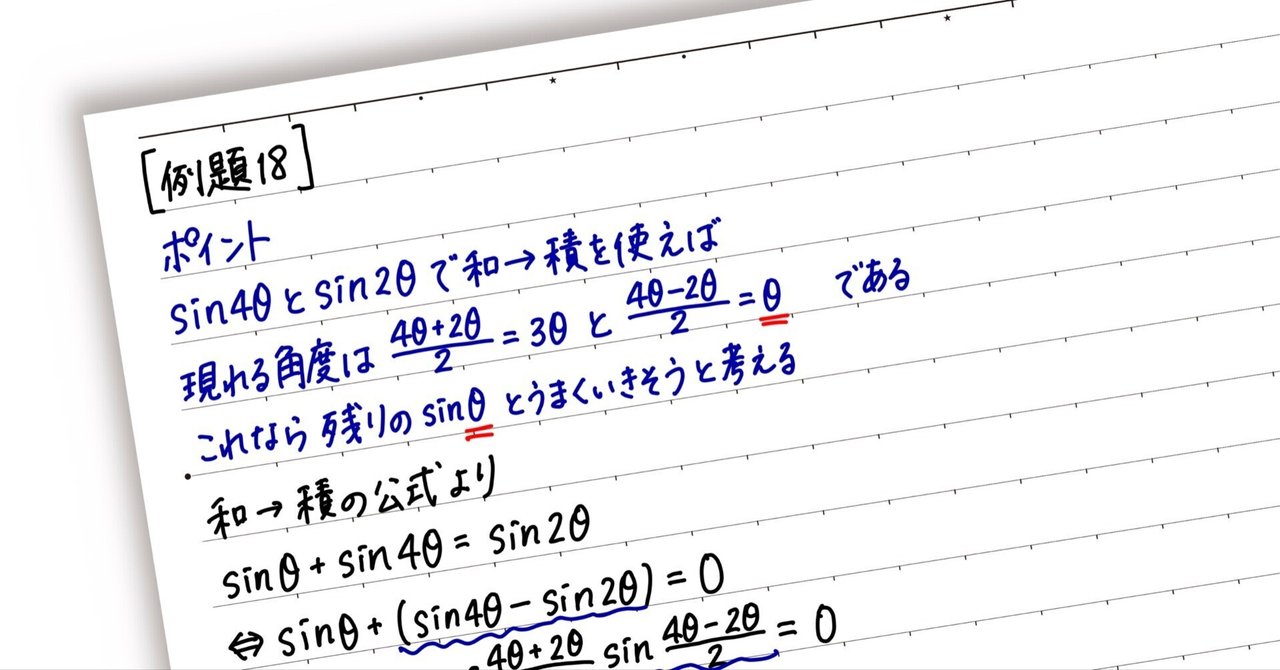 [例題18]
ポイント
sin4θとsin2θで和→積を使えば
現れる角度は (4θ+2θ)/2 = 3θ と (4θ-2θ)/2 = θ である
これなら残りのsinθとうまくいきそうと考える
和→積の公式より
sinθ + sin4θ = sin2θ
⇔ sinθ + (sin4θ - sin2θ) = 0
4θ+2θ sin (4θ-2θ)/2 = 0